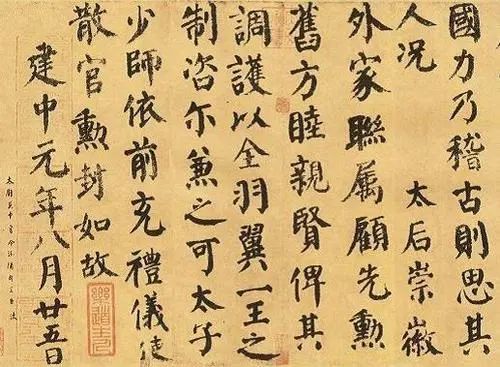 國力乃稽古則思其
人况 太后崇徽
外家聯属顧先勲
舊方睦親賢俾其
調護以全羽翼一王之
制咨尔兼之可太子
少師依前充禮儀使
散官勲封如故
建中元年八月廿五日